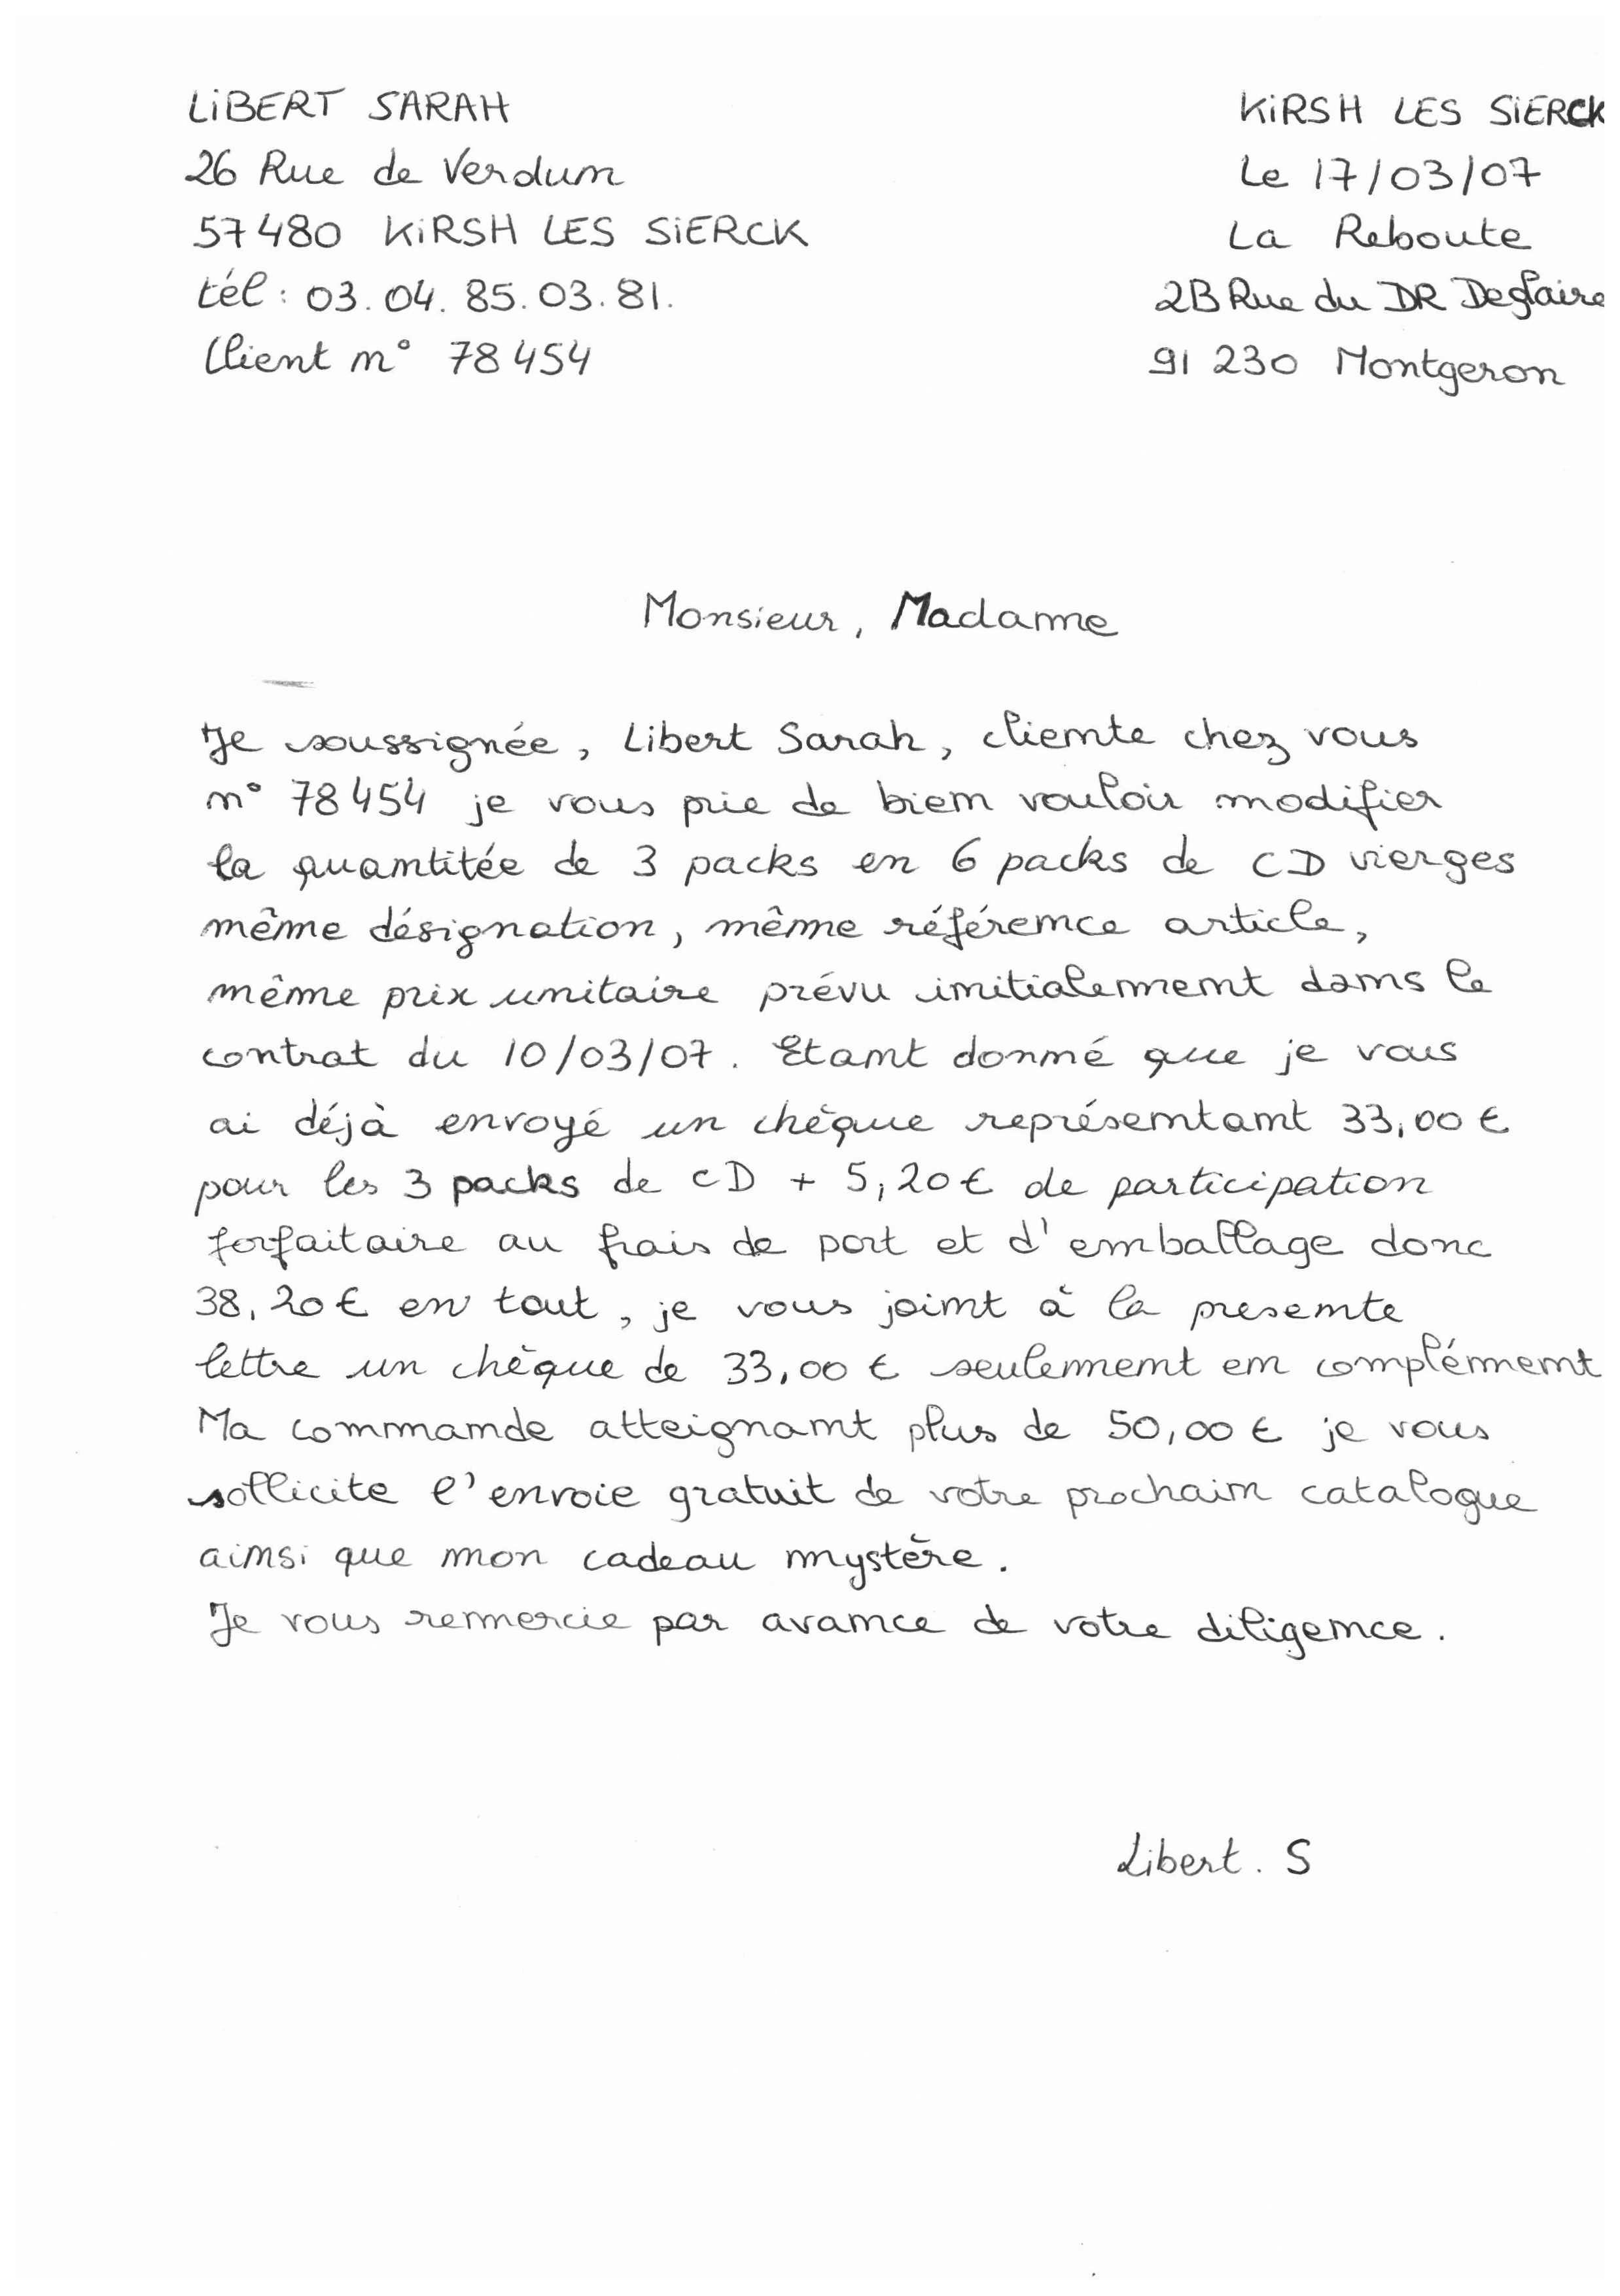 LIBERT SARAH
26 Rue de Verdun
57480 KIRSH LES SIERCK
tél : 03.04.85.03.81.
Client n° 78454
KIRSH LES SIERCK
Le 17/03/07
La Reboute
2B Rue du DR Deglaire
91 230 Montgeron
Monsieur, Madame
Je soussignée, Libert Sarah, cliente chez vous
n° 78454 je vous prie de bien vouloir modifier
la quantitée de 3 packs en 6 packs de CD vierges
même désignation, même référence article,
même prix unitaire prévu initialement dans le
contrat du 10/03/07. Etant donné que je vous
ai déjà envoyé un chèque représentant 33,00 €
pour les 3 packs de CD + 5,20 € de participation
forfaitaire au frais de port et d'emballage donc
38,20 € en tout, je vous joint à la presente
lettre un chèque de 33,00 € seulement en complément
Ma commande atteignant plus de 50,00 € je vous
sollicite l'envoie gratuit de votre prochain catalogue
ainsi que mon cadeau mystère.
Je vous remercie par avance de votre diligence.
Libert. S